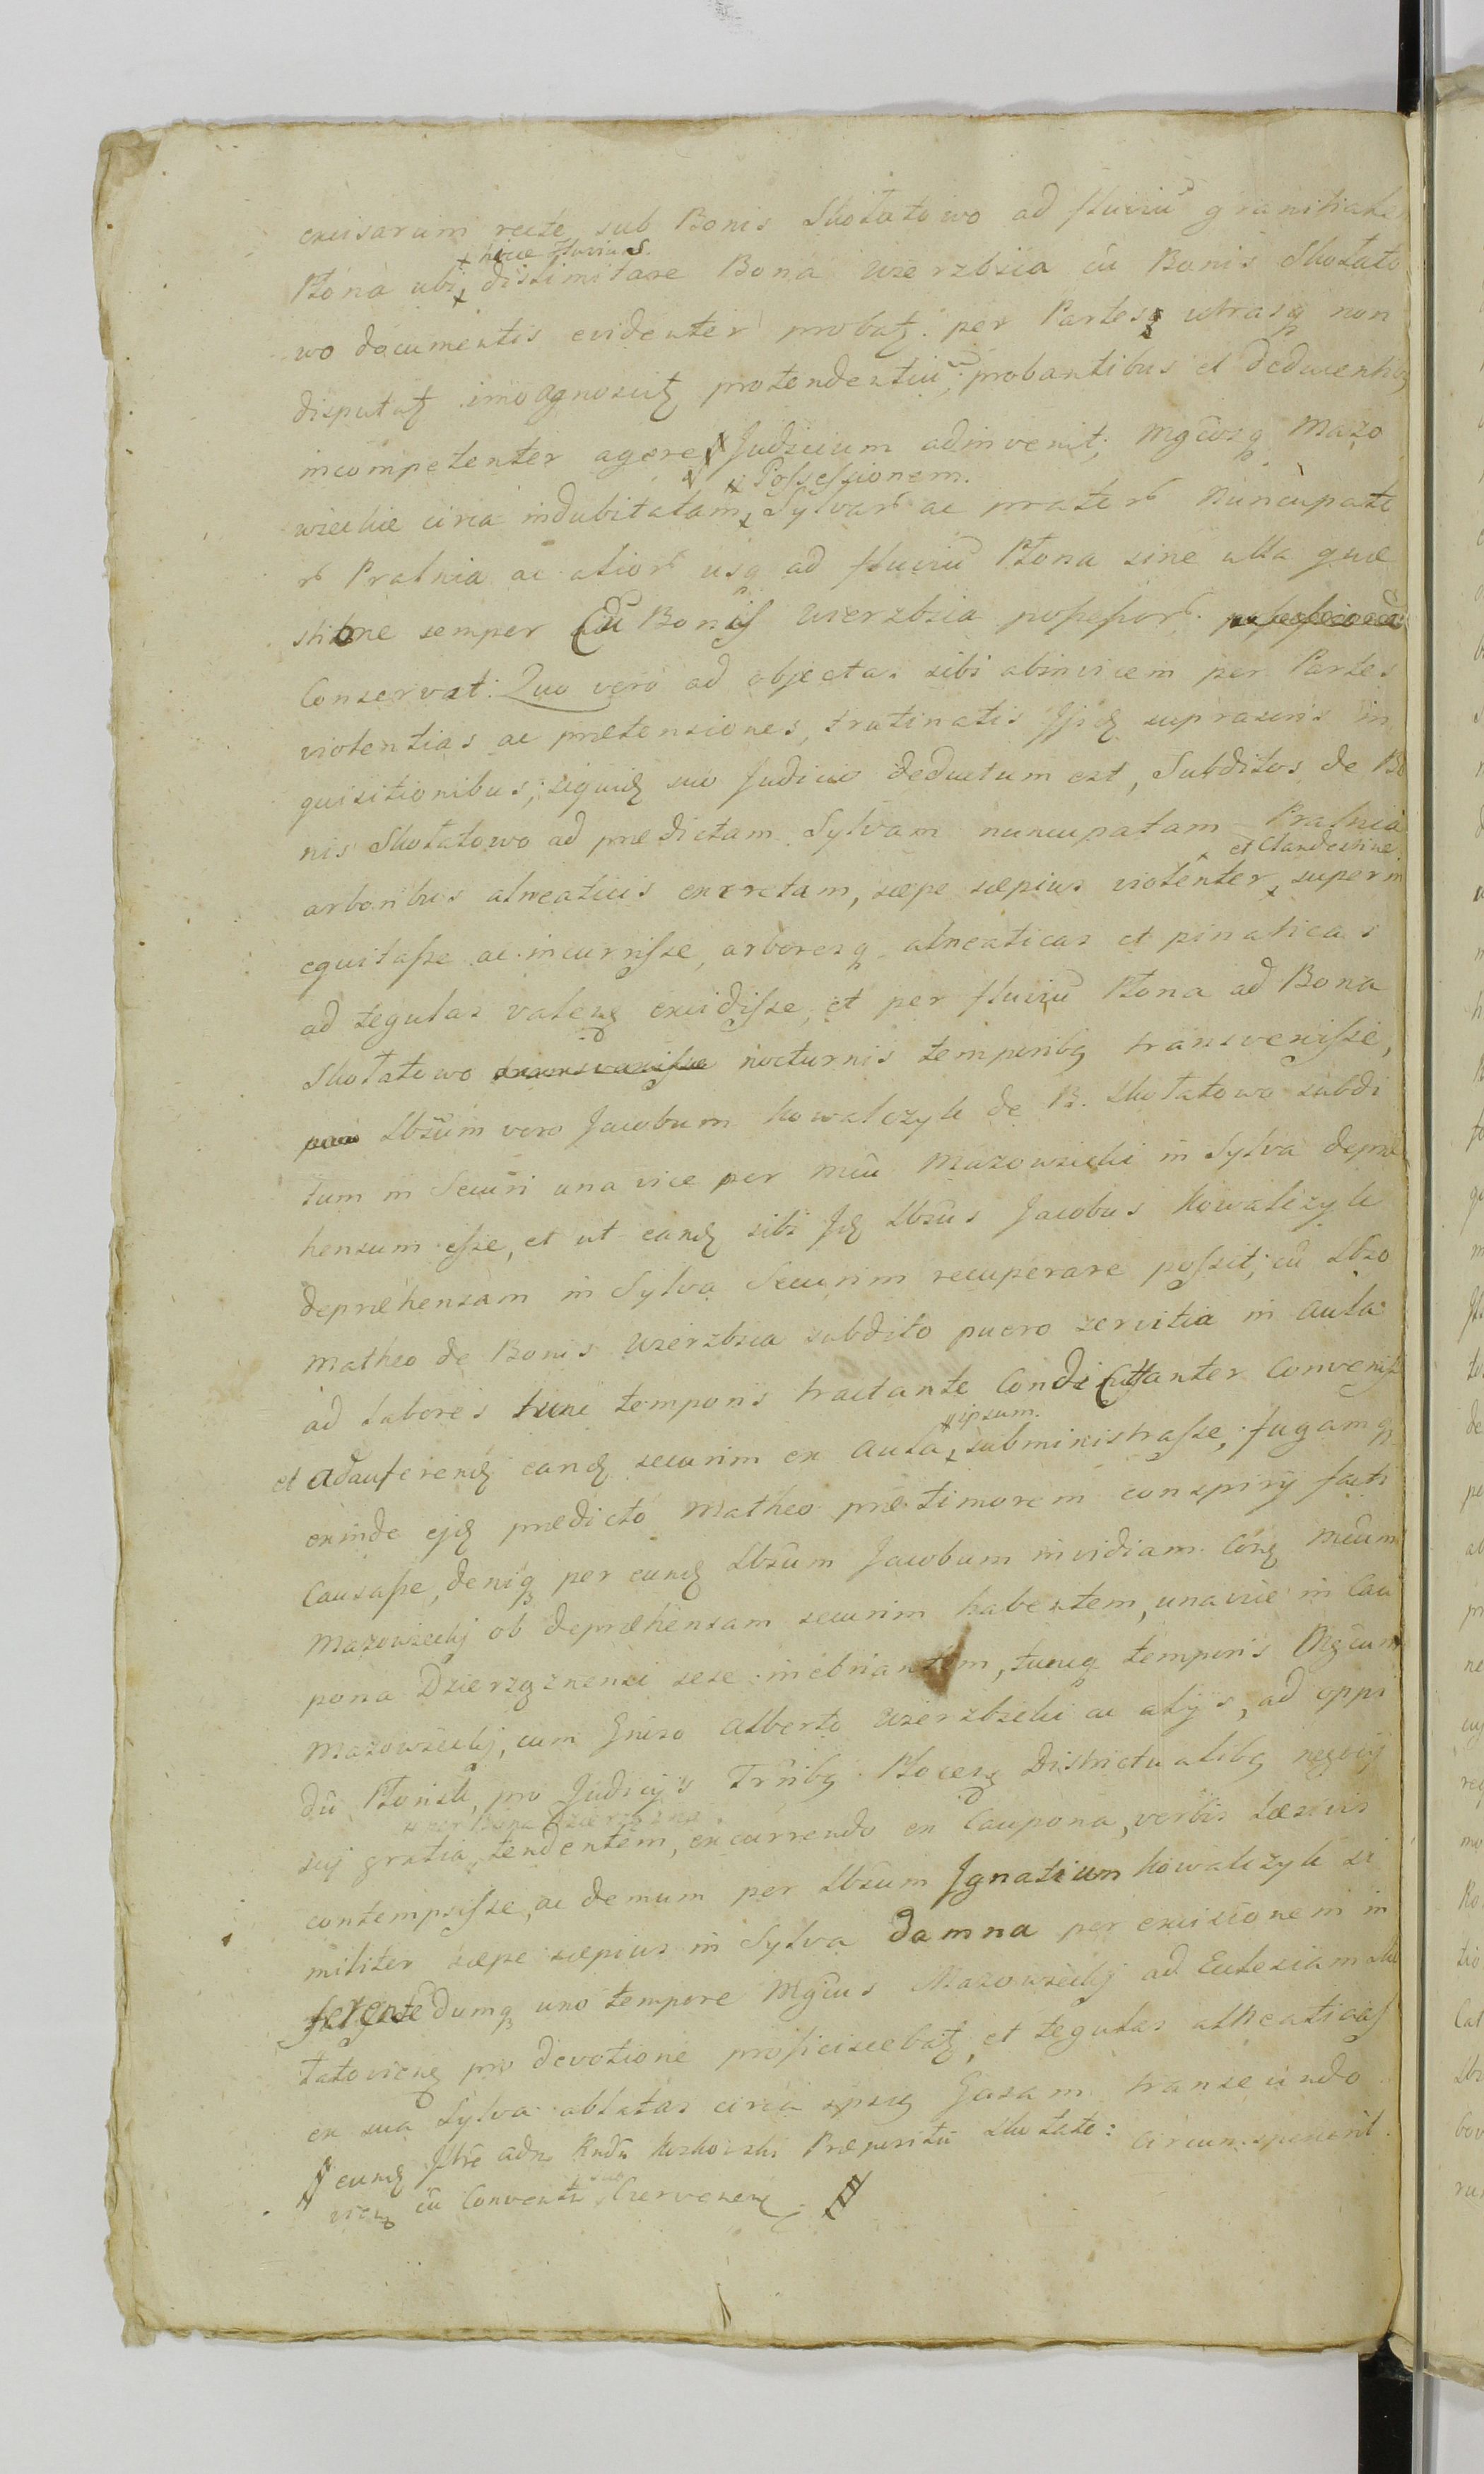 excisarum recte sub Bonis Skołatowo ad fluviū granitialem
Płona ubi hicce Fluvius distimitare Bona Wierzbsia cū Bonis Skołato
wo documentis evidenter probatʒ. per Partes utrasqʒ non
disputatʒ imo agnoscitʒ protendentiū, probantibus et deducentibʒ
incompetenter agere Judicium adinvenit; Mgcosqʒ Mazo
wieckie circa indubitatam Possessionem. Sylvarʳ ac prator̃ Nuncupato
r̃ Pralnia ac alior̃ usqʒ ad fluviū Płona sine ulla quæ
stione semper Cū Bonis Wierzbsia possessor̃.
Conservat: Quo vero ad objectas sibi abinvicem per Partes
violentias ac prætensiones, trutinatis Jisdʒ suprascris in
quisitionibus; siquidʒ suo Judicio deductum est, Subditos de Bo
nis Skołatowo ad prædictam Sylvam nuncupatam Pralnia
arboribus alneaticis excretam, sæpe sæpius violenter et Clandestine superin
equitasse ac incurrisse, arboresqʒ alneaticas et pinaticas
ad tegulas valenʒ excidisse, et per fluviū Płona ad Bona
Skołatowo transvenisse nocturnis temporibʒ transvenisse,
Lbsum vero Jacobum Kowalczyk de B. Skołatowo subdi
tum in Securi una vice per Mcū Mazowiecki in Sylva depræ
hensum esse, et ut eandʒ sibi Jdʒ Lbsus Jacobus Kowalczyk
depræhensam in Sylva Securim recuperare possit; cū Lbso
Matheo de Bonis Wierzbsia subdito puero servitia in Aula
ad labores tunc temporis tractante Condictanter Convenisse
et ad auferendʒ eandʒ securim ex Aula ipsum. subministrasse, fugamqʒ
exinde ejdʒ prædicto Matheo præ timorem conspirij facti
Causasse, deniqʒ per eundʒ Lbsum Jacobum invidiam Conʒ Mcum
Mazowieckij ob depræhensam securim habentem, una vice in Cau
pona Dzierzgznensi sese inebriantem, tuncqʒ temporis Mgcum
Mazowieckij, cum Gnrso Alberto Wierzbicki ac alijs, ad oppi
dū Płonsk, pro Judicijs Trñlibʒ Plocensʒ Districtualibʒ negocij
sui gratia per Bona Dzierzgzna tendentem, excurrendo ex Caupona, verbis læsivis
contempsisse, ac demum per Lbsum Ignatium Kowalczyk si
militer sæpe sæpius in Sylva damna per excisionem in
ferente dumqʒ uno tempore Mgcus Mazowieckij ad Eclesiam Sko
łatovienʒ pro devotione proficiscebatʒ, et tegulas alneaticas
ex sua Sylva ablatas circa ipsiʒ Gazam transeundo
eundʒ Jllre Adm Rndū Koskowski Præpositū Skołato: circumspexerit.
vienʒ cū Conventū suo Czervenenʒ